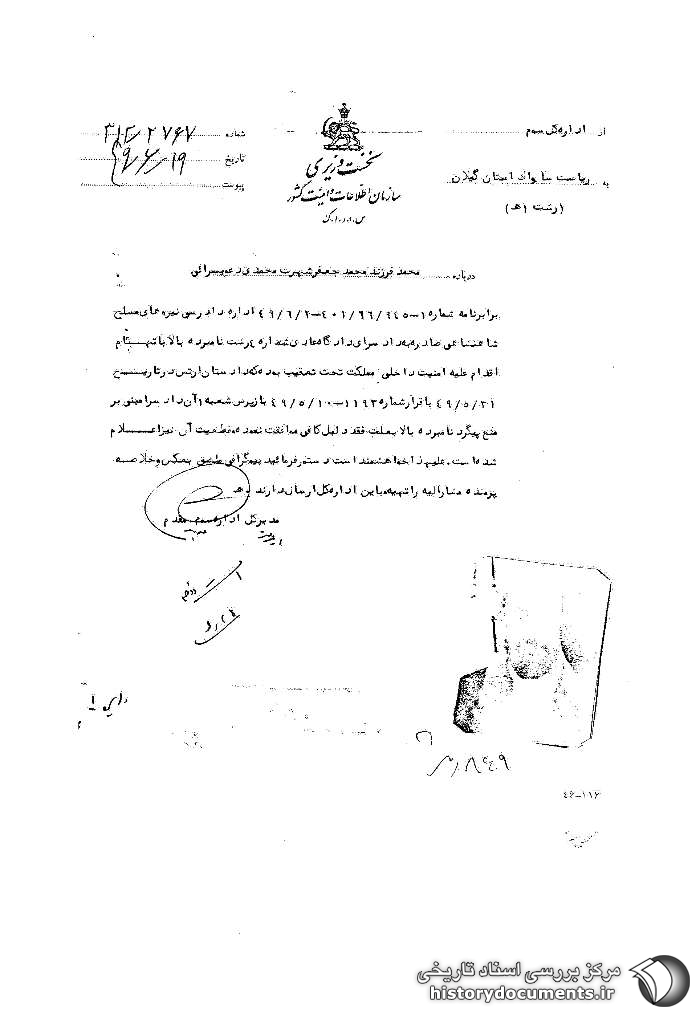 از اداره کل سوم
به ریاست ساواک استان گیلان
(رشت ۱ هـ)
نخست وزیری
سازمان اطلاعات و امنیت کشور
س.ا.و.ا.ک
شماره ۳۱۲/۲۷۶۷
تاریخ ۴۹/۶/۱۹
پیوست
درباره محمد فرزند محمد جعفر شهرت محمدی دعویسرائی
برابر نامه شماره ۱-۴۰۱/۹۶/۹۴۵-۴۹/۶/۲ اداره دادرسی نیروهای مسلح
شاهنشاهی صادره به دادسرای دادگاه عادی شماره ۴ رشت نامبرده بالا باتهام
اقدام علیه امنیت داخلی مملکت تحت تعقیب بوده که دادستان ارتش در تاریخ
۴۹/۵/۳۱ با قرار شماره ۱۱۹۳-۴۹/۵/۱۰ بازپرس شعبه ۱ آن دادسرا مبنی بر
منع پیگرد نامبرده بالا بعلت فقد دلیل کافی موافقت نموده و قطعیت آن نیز اعلام
شده است. علیهذا خواهشمند است دستور فرمائید بیوگرافی ملصق بعکس و خلاصه
پرونده مشارالیه را تهیه و باین اداره کل ارسال دارند. هـ
مدیر کل اداره سوم. مقدم
بایگانی
۴۶-۱۱۶
مرکز بررسی اسناد تاریخی
historydocuments.ir